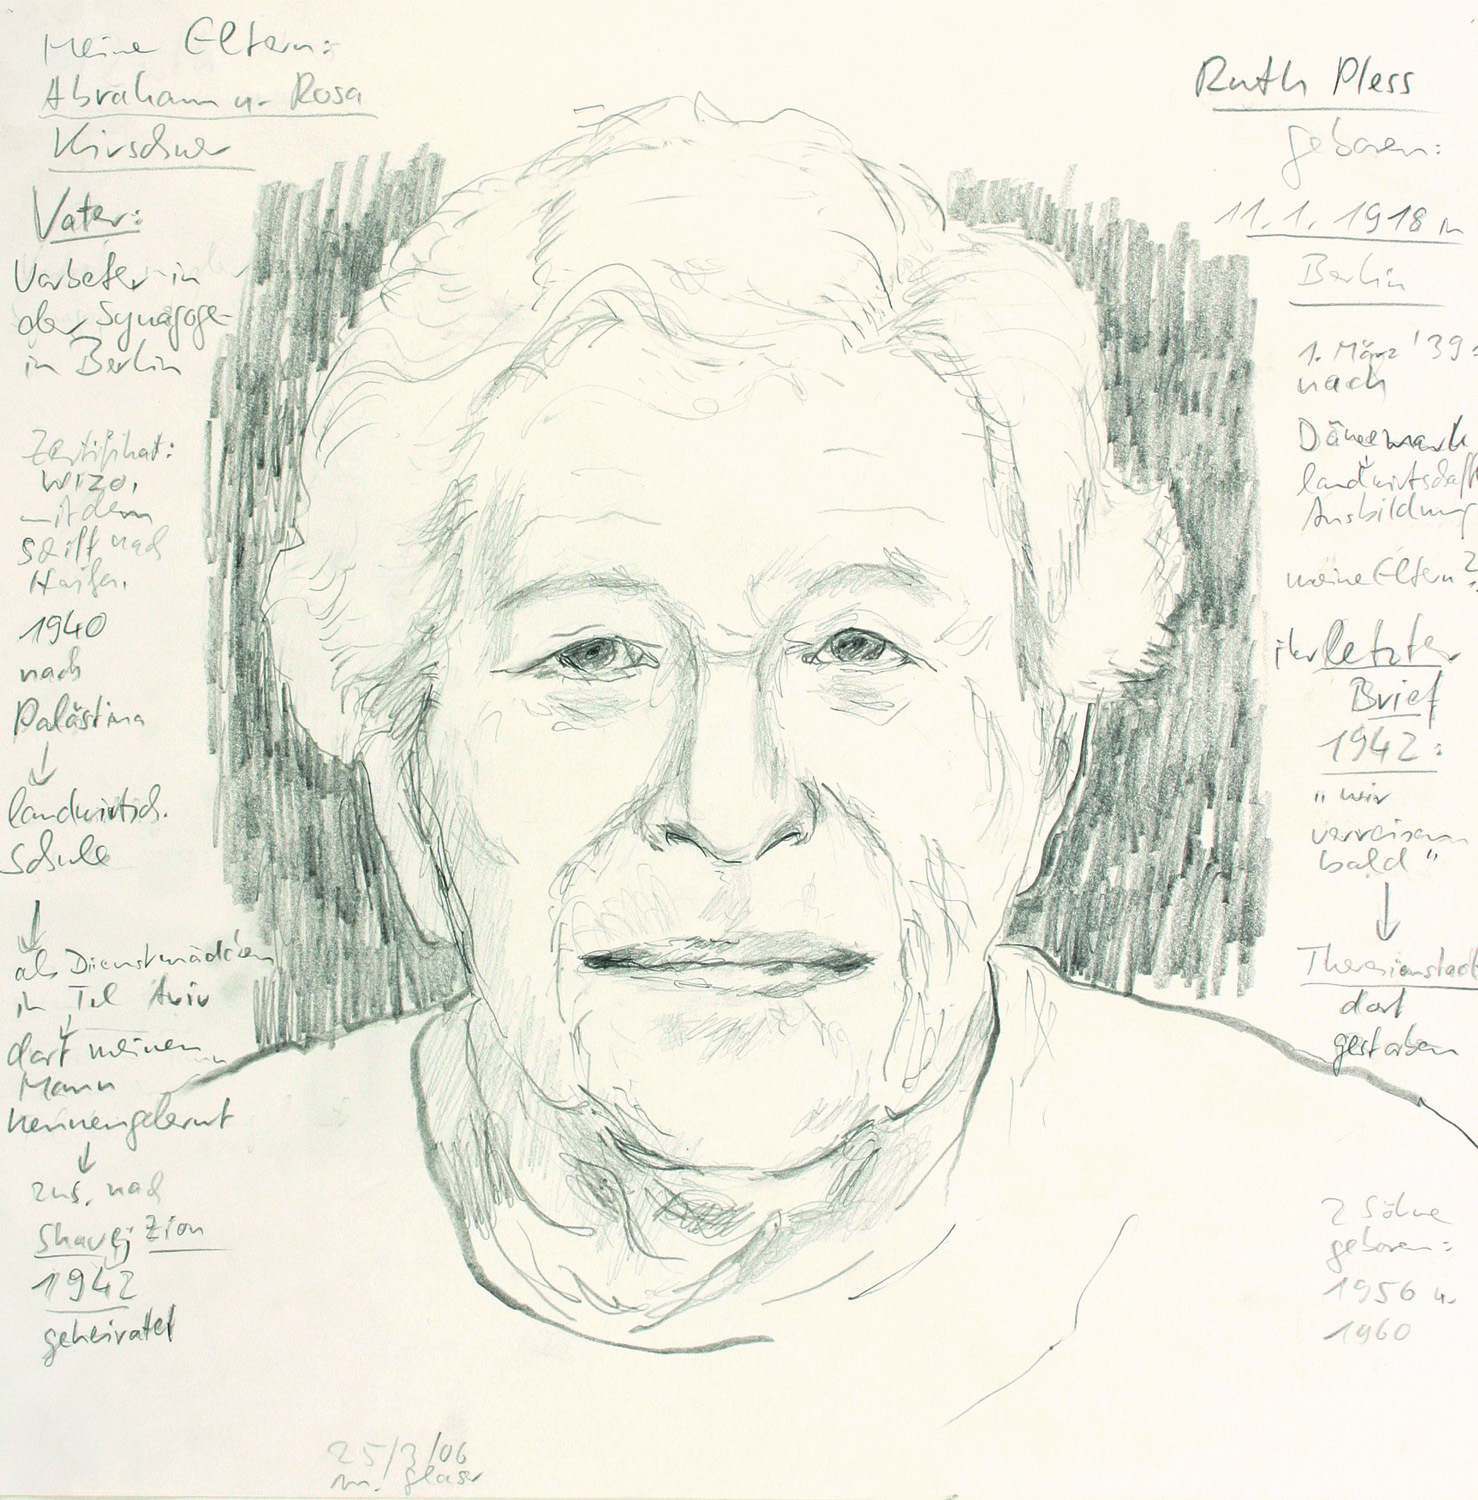 Meine Eltern:
Abraham u. Rosa
Kirschner
Vater:
Vorbeter in
der Synagoge
in Berlin
Zertifikat:
WIZO,
mit dem
Schiff nach
Haifa.
1940
nach
Palästina
↓
landwirtsch.
Schule
↓
als Dienstmädchen
in Tel Aviv
↓
dort meinen
Mann
kennengelernt
↓
zus. nach
Shavej Zion
1942
geheiratet
Ruth Pless
geboren:
11.1.1918 in
Berlin
1. März '39:
nach
Dänemark
landwirtschaftl
Ausbildung
meine Eltern?
ihr letzter
Brief
1942:
"wir
verreisen
bald"
↓
Theresienstadt
dort
gestorben
2 Söhne
geboren:
1956 u.
1960
25/3/06
m. glaser